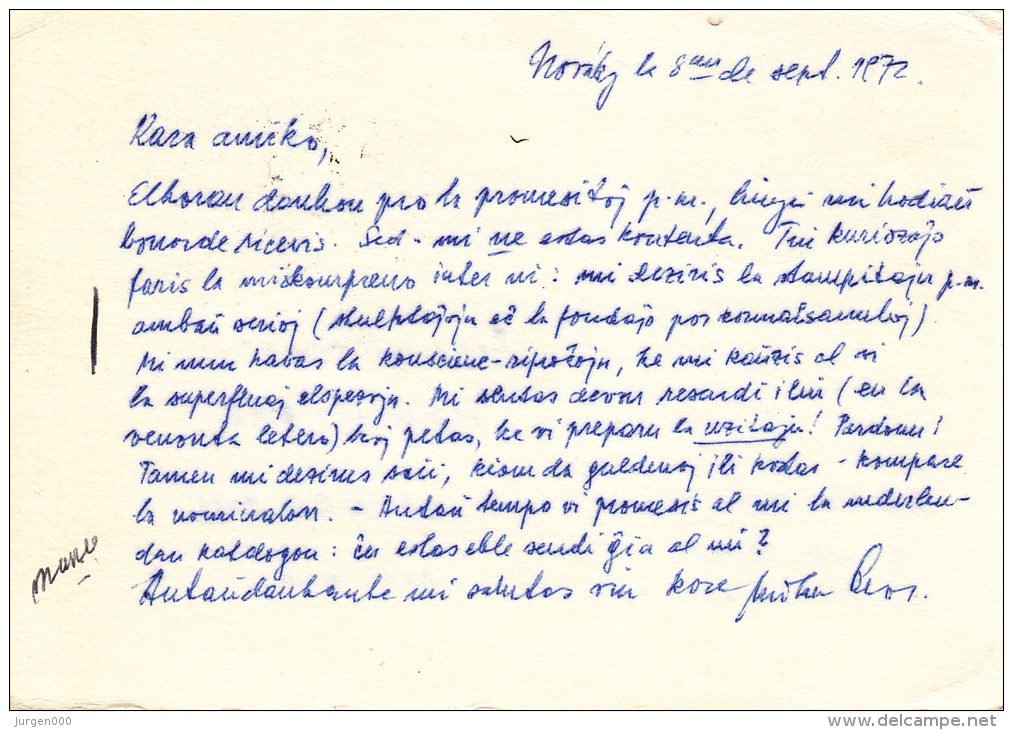 Nováky la 8an de sept. 1972.
Kara amiko,
Elkoran dankon pro la promesitoj p.m., kiujn mi hodiaŭ
bonorde ricevis. Sed - mi ne estas kontenta. Tui kuriozaĵo
faris la miskompreno inter ni: mi deziris la stampitajn p.m.
ambaŭ serioj (skulptaĵojn aŭ la fondaĵo por
Mi nun havas la konscienc-riproĉojn, ke mi kaŭzis al vi
la superfluaj elspezojn. Mi sentas devon resendi ilin (en la
venonta letero) kaj petas, ke vi preparu la uzitajn! Pardonu!
Tamen mi dezirus scii, kiom da guldenoj ili kostas - kompare
la nominalon. - Antaŭ tempo vi promesis al mi la nederlan-
dan katalogon: ĉu estas eble sendi ĝin al mi?
Antaŭdankante mi salutas vin kore
Jurgen000
www.delcampe.net